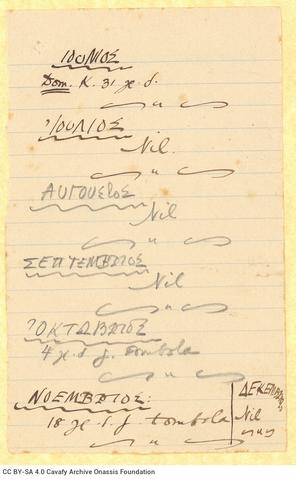 ΙΟΥΝΙΟΣ
Dom. K. 31
ἸΟΥΛΙΟΣ
Nil.
ΑΥΓΟΥΣΤΟΣ
Nil
ΣΕΠΤΕΜΒΡΙΟΣ
Nil
ὈΚΤΩΒΡΙΟΣ
4 tombola
ΝΟΕΜΒΡΙΟΣ:
18 tombola
ΔΕΚΕΜΒΡΙΟΣ
Nil
CC BY-SA 4.0 Cavafy Archive Onassis Foundation